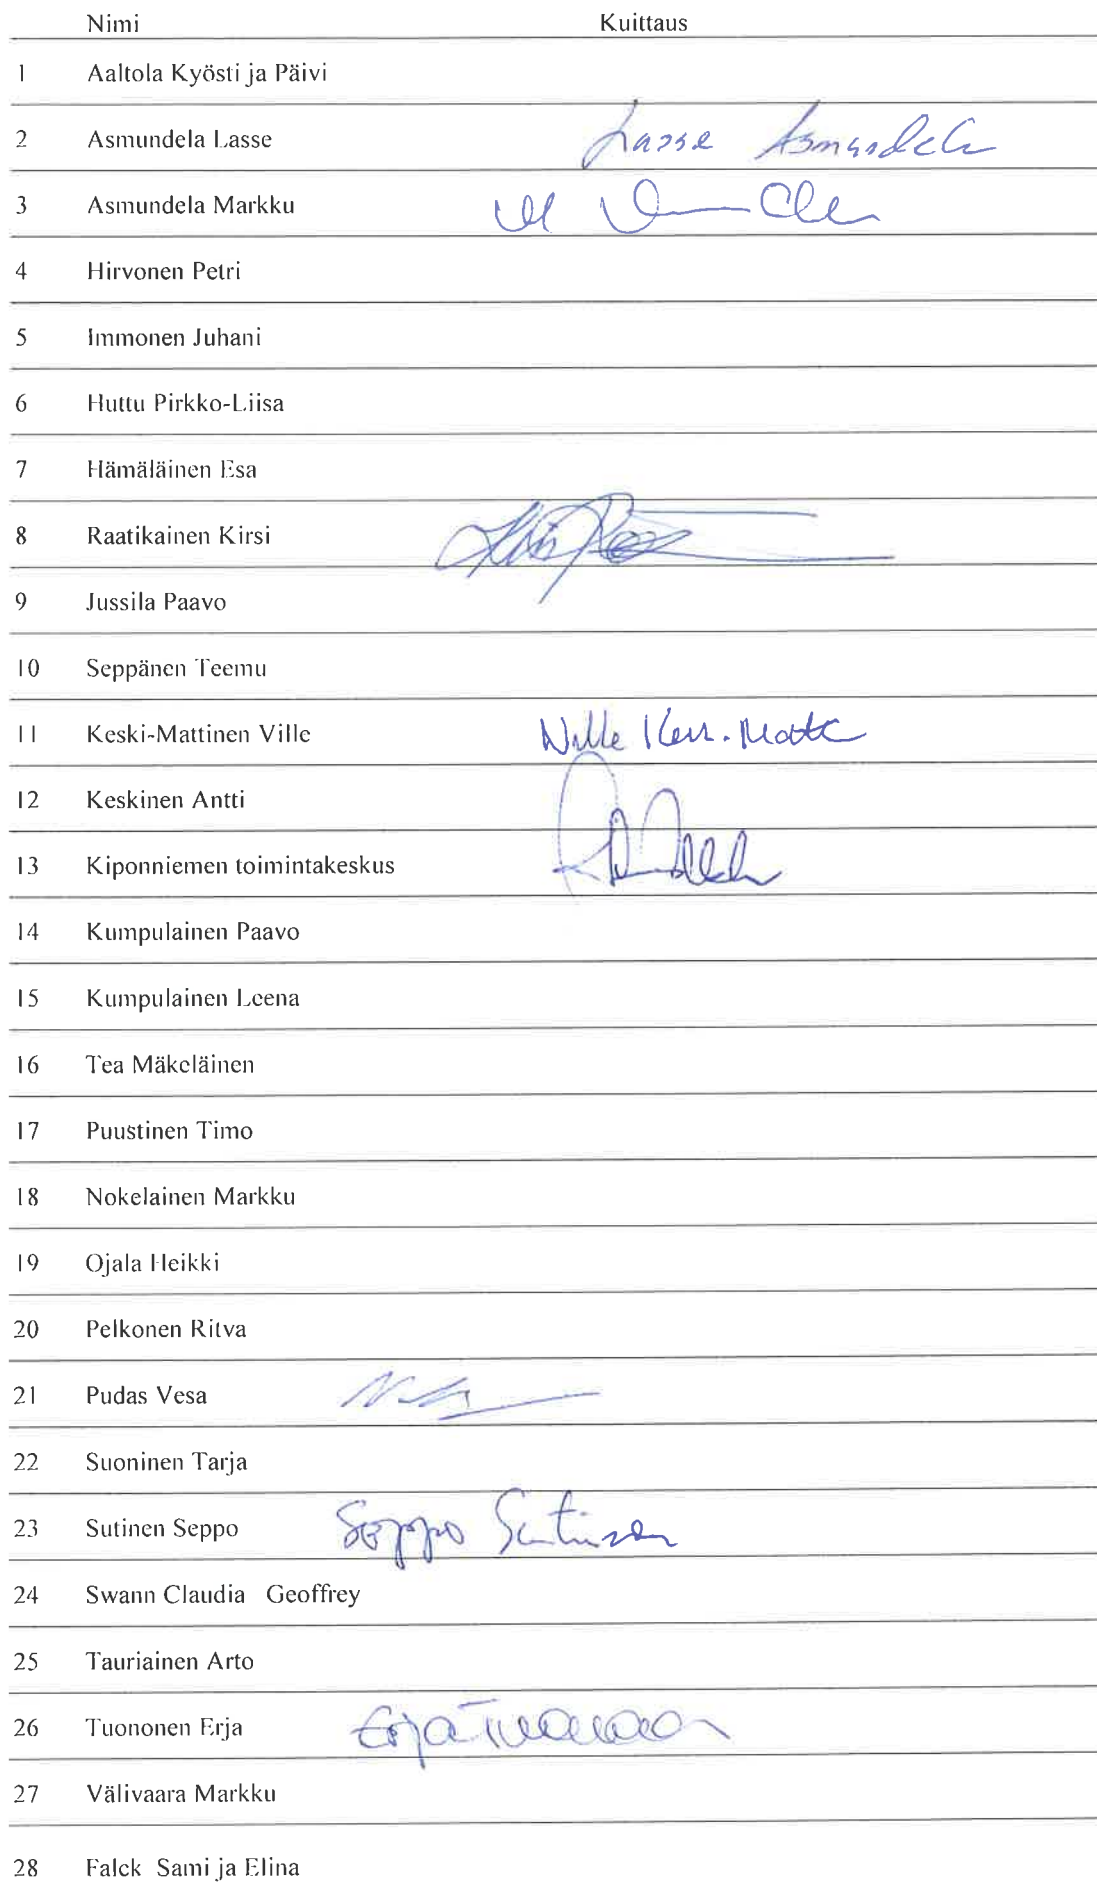 Nimi Kuittaus
1 Aaltola Kyösti ja Päivi
2 Asmundela Lasse Lasse Asmundela
3 Asmundela Markku
4 Hirvonen Petri
5 Immonen Juhani
6 Huttu Pirkko-Liisa
7 Hämäläinen Esa
8 Raatikainen Kirsi
9 Jussila Paavo
10 Seppänen Teemu
11 Keski-Mattinen Ville Ville
12 Keskinen Antti
13 Kiponniemen toimintakeskus
14 Kumpulainen Paavo
15 Kumpulainen Leena
16 Tea Mäkeläinen
17 Puustinen Timo
18 Nokelainen Markku
19 Ojala Heikki
20 Pelkonen Ritva
21 Pudas Vesa
22 Suoninen Tarja
23 Sutinen Seppo Seppo Sutinen
24 Swann Claudia Geoffrey
25 Tauriainen Arto
26 Tuononen Erja Erja Tuononen
27 Välivaara Markku
28 Falck Sami ja Elina